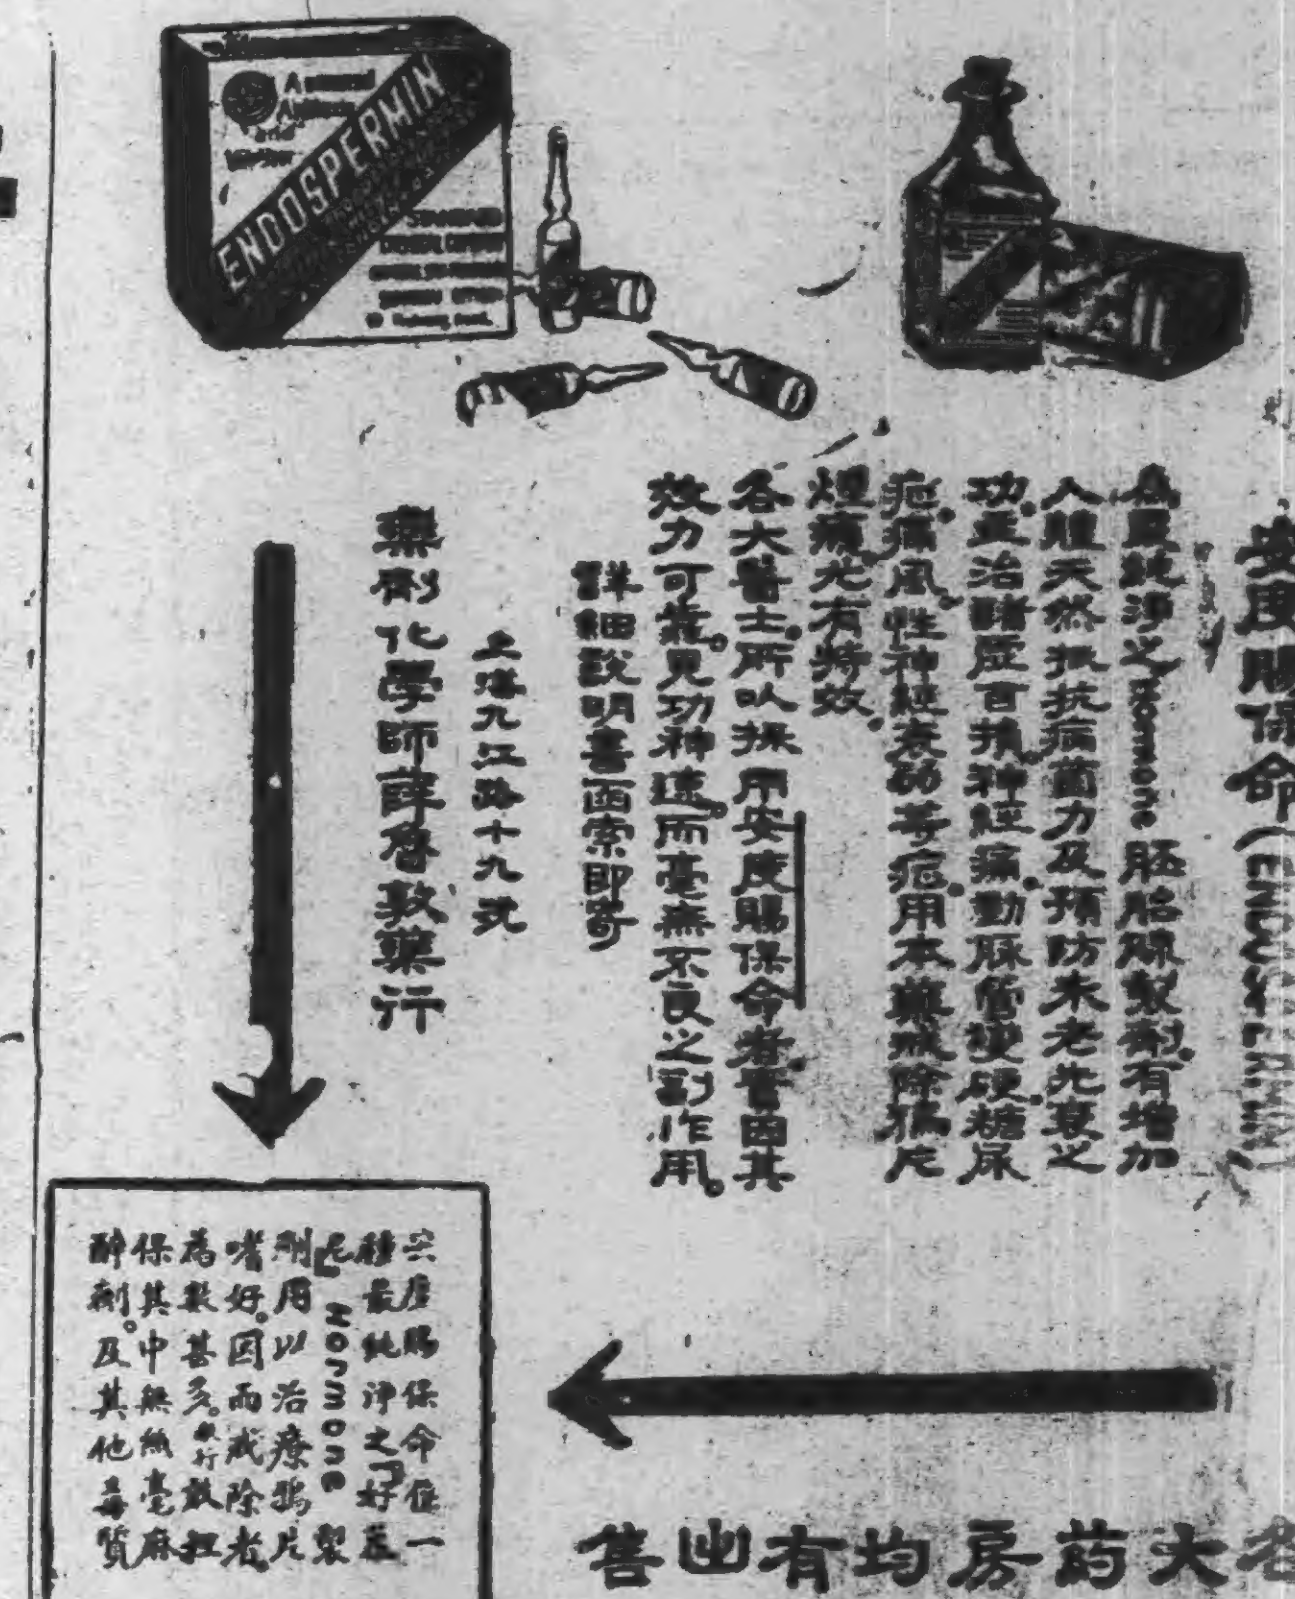 安度賜保命(ENDOSPERMIN)
為最純淨之Hormone胚胎腺製劑。有增加
人體天然抵抗病菌力及預防未老先衰之
功。主治諸虛百損。神經痛。動脉管硬糖尿
症。痛風性神經衰弱等症。用本藥戒除鴉片
煙癮。尤有特效。
各大醫士。所以採用安度賜保命者。實因其
效力可靠。見功神速。而毫無不良之副作用。
詳細說明書函索即寄
上海九江路十九号
藥劑化學師薛魯敦藥行
ENDOSPERMIN
安度賜保命係一
種最純淨之「好蒙
尼」Hormone製
劑。用以治療鴉片
嗜好。因而戒除者
為數甚多。敝行敢担
保其中無絲毫麻
醉劑。及其他毒質
各大药房均有出售